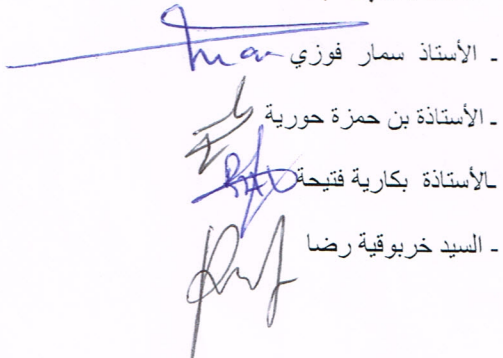 - الأستاذ سمار فوزي
- الأستاذة بن حمزة حورية
-الأستاذة بكارية فتيحة
- السيد خربوقية رضا